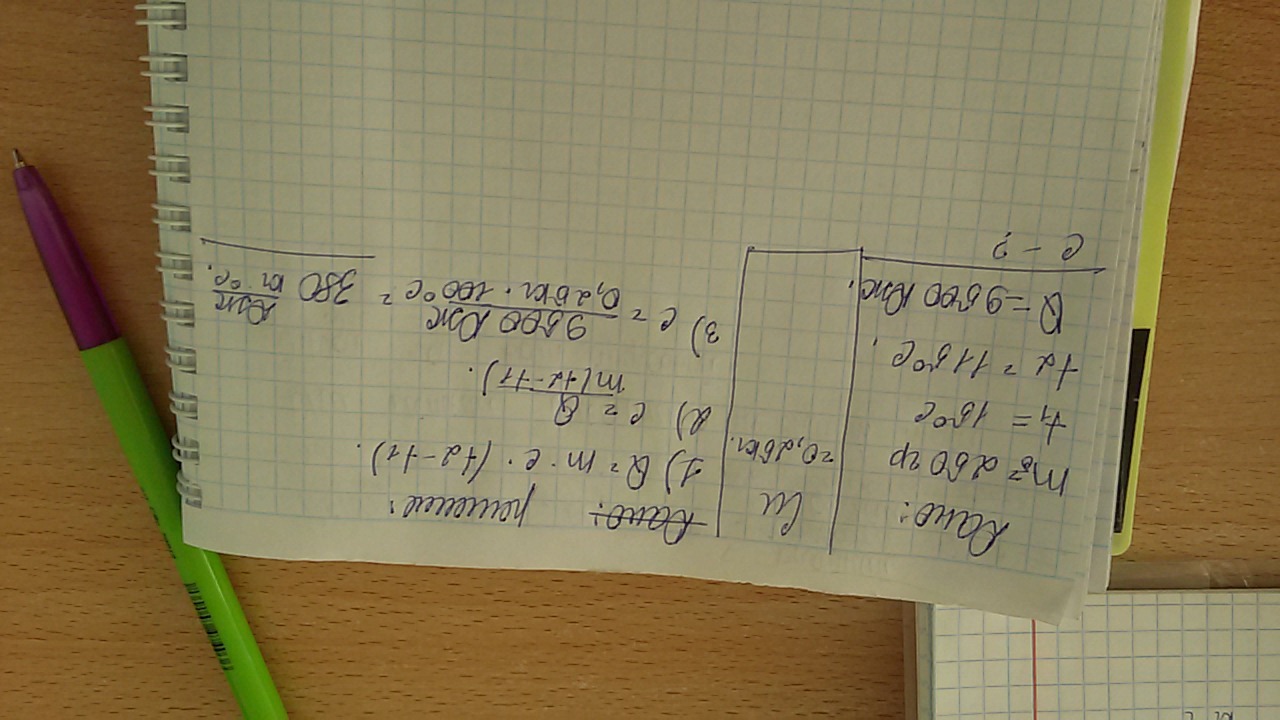 Дано:
m = 250 гр
t₁ = 15°C
t2 = 115°C.
Q = 9500 Дж.
c - ?
Си
=0,25кг.
Дано: решение:
1) Q = m · c · (t2 - t1).
2) c = Q / m(t2 - t1).
3) c = 9500 Дж / 0,25кг · 100°C = 380 Дж / кг · °C.